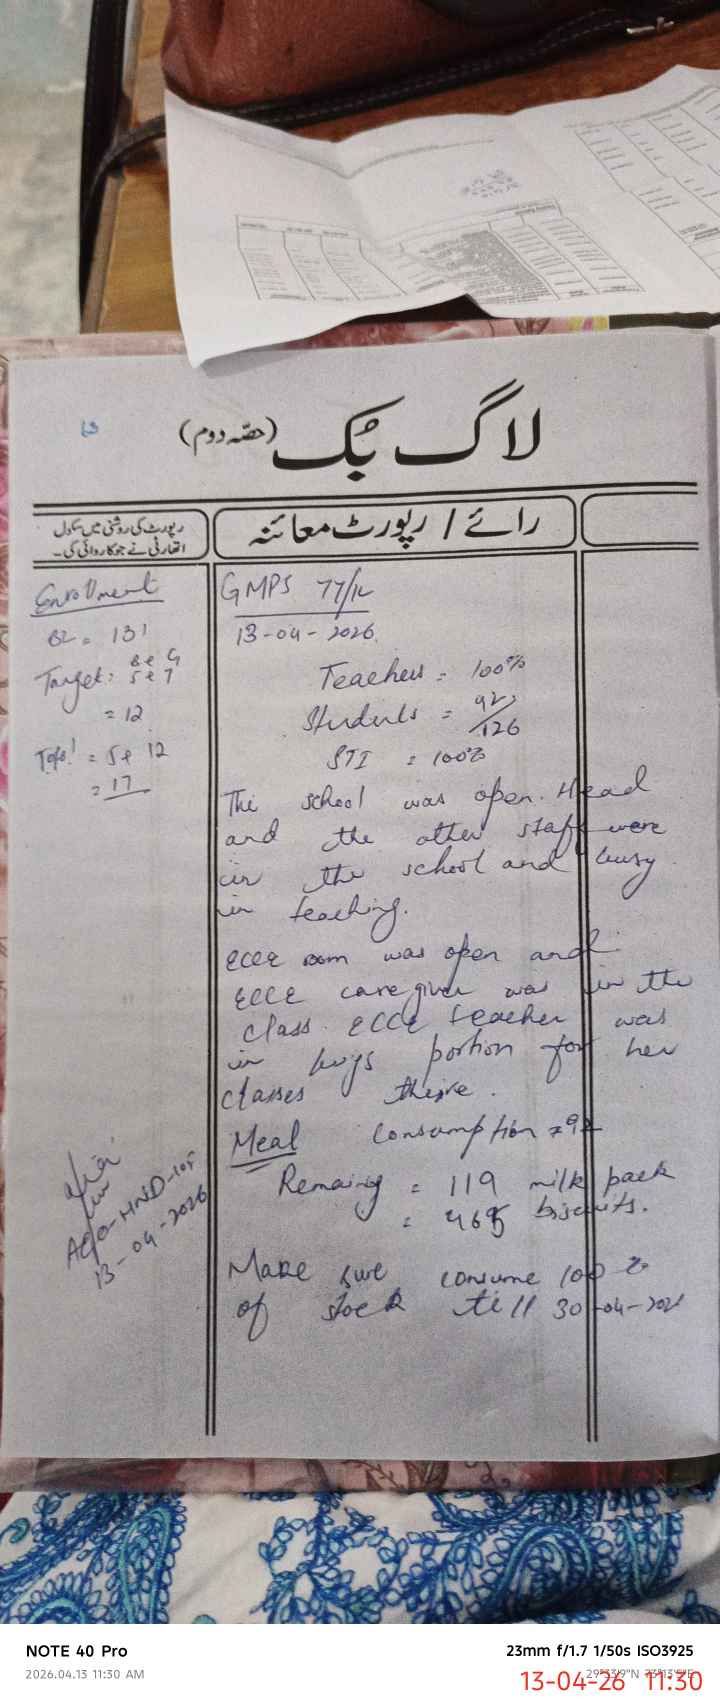 لاگ بُک (حصّہ دوم)
رپورٹ کی روشنی میں سکول
اتھارٹی نے جو کاروائی کی۔
رائے / رپورٹ معائنہ
Enrollment
BL = 131
Target: B e G
5 e 7
= 12
= 5 e 12
= 17
GMPS 77/12
13-04-2026
Teachers = 100%
Students = 92/126
STI = 100%
The school was open. Head
and the other staff were
in the school and busy
in teaching.
ECCE room was open and
ECCE caregiver was in the
class. ECCE teacher was
in boys portion for her
classes there.
Meal Consumption = 92
Remaing = 119 milk pack
= 465 biscuits.
Make sure consume 100%
of stock till 30-04-2026
13-04-2026
NOTE 40 Pro
2026.04.13 11:30 AM
23mm f/1.7 1/50s ISO3925
13-04-26 11:30